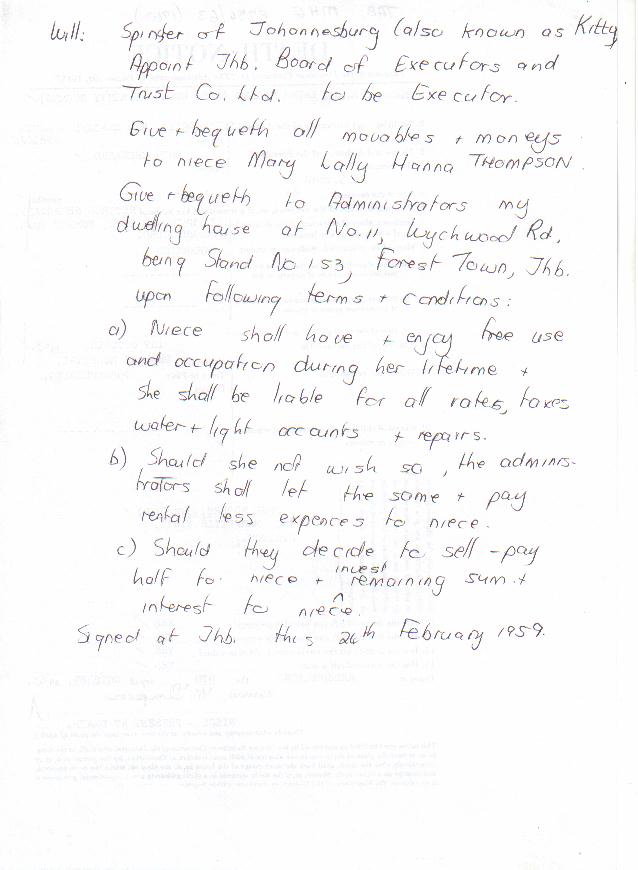 Will: Spinster of Johannesburg (also known as Kitty
Appoint Jhb. Board of Executors and
Trust Co. Ltd. to be Executor.
Give + bequeth all movables + moneys
to niece Mary Lally Hanna THOMPSON.
Give + bequeth to Administrators my
dwelling house at No. 11, Wychwood Rd,
being Stand No 153, Forest Town, Jhb.
upon following terms + conditions:
a) Niece shall have + enjoy free use
and occupation during her lifetime +
she shall be liable for all rates, taxes
water + light accounts + repairs.
b) Should she not wish so, the adminis-
trators shall let the same + pay
rental less expences to niece.
c) Should they decide to sell - pay
half to niece + invest remaining sum +
interest to niece.
Signed at Jhb. this 26th February 1959.